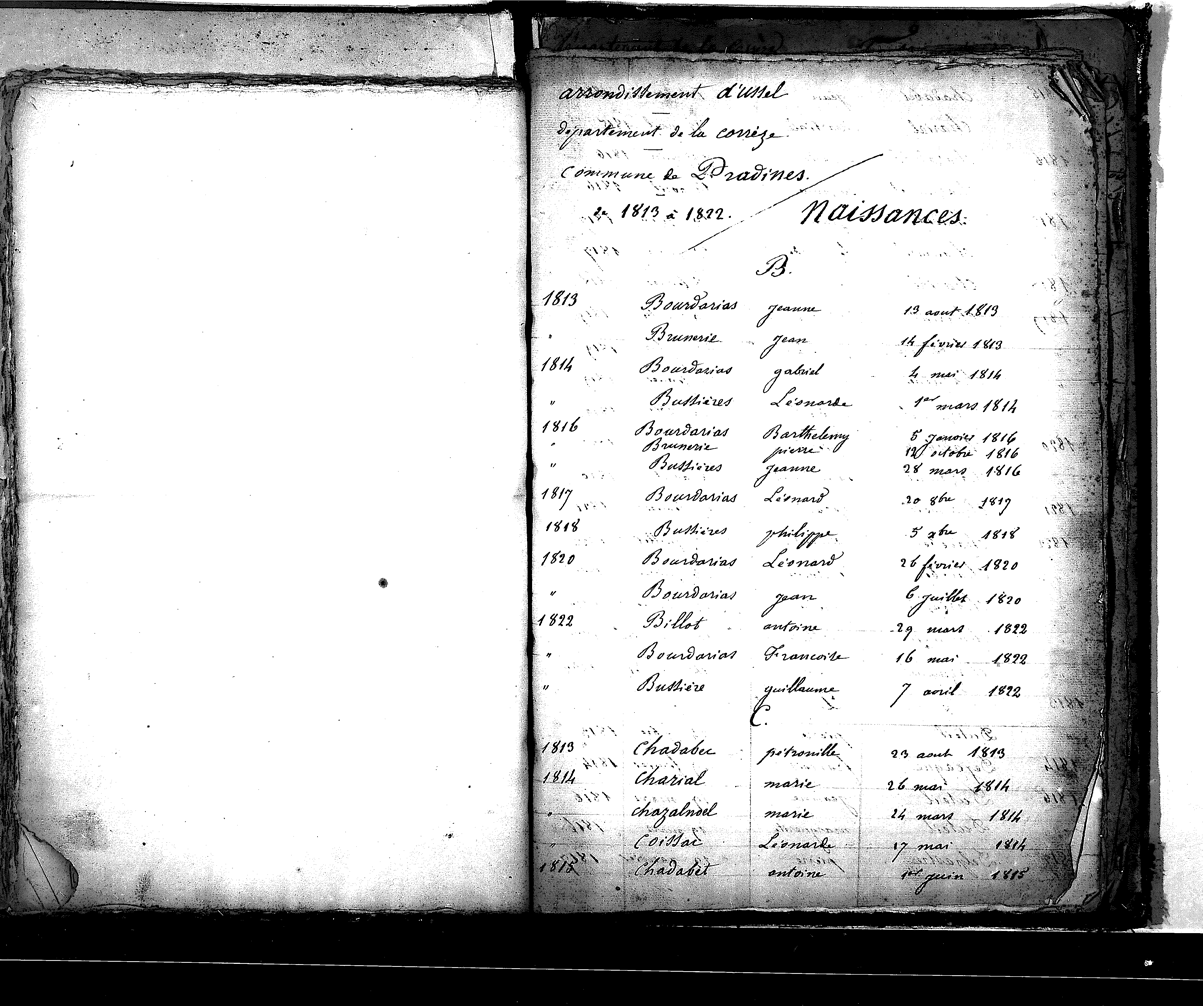 arrondissement d'ussel
département de la corrèze
Commune de Pradines.
de 1813 à 1822.
Naissances.
B.
1813 Bourdarias jeanne 13 aout 1813
" Brunerie jean 14 février 1813
1814 Bourdarias gabriel 4 mai 1814
" Bussières Léonarde 1er mars 1814
1816 Bourdarias Barthelemy 5 janvier 1816
" Brunerie pierre 12 octobre 1816
" Bussières jeanne 28 mars 1816
1817 Bourdarias Léonard 20 8bre 1817
1818 Bussières philippe 5 xbre 1818
1820 Bourdarias Léonard 26 février 1820
" Bourdarias jean 6 juillet 1820
1822 Billot antoine 29 mars 1822
" Bourdarias Francoise 16 mai 1822
" Bussière guillaume 7 avril 1822
C.
1813 Chadabec pétronille 23 aout 1813
1814 Charial marie 26 mai 1814
" chazalnoël marie 24 mars 1814
" Coissac Léonarde 17 mai 1814
1815 Chadabet antoine 1er juin 1815